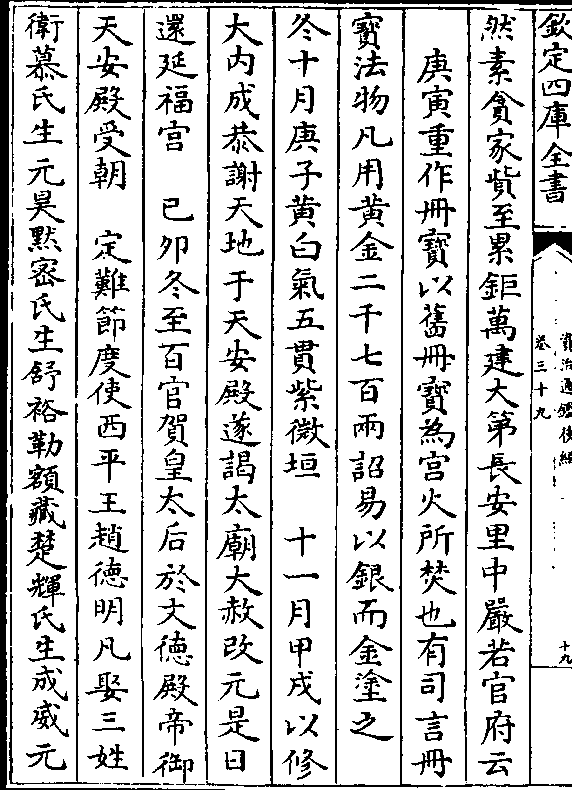 欽定四庫全書
資治通鑑後編
卷三十九
十九
然素貪家貲至累鉅萬建大第長安里中嚴若官府云
庚寅重作冊寶以舊冊寶為宫火所焚也有司言冊
寶法物凡用黄金二千七百兩詔易以銀而金塗之
冬十月庚子黄白氣五貫紫微垣　十一月甲戌以修
大内成恭謝天地于天安殿遂謁太廟大赦改元是日
還延福宫　已卯冬至百官賀皇太后於文德殿帝御
天安殿受朝　定難節度使西平王趙德明凡娶三姓
衛慕氏生元昊默宻氏生舒裕勒額藏楚輝氏生成威元